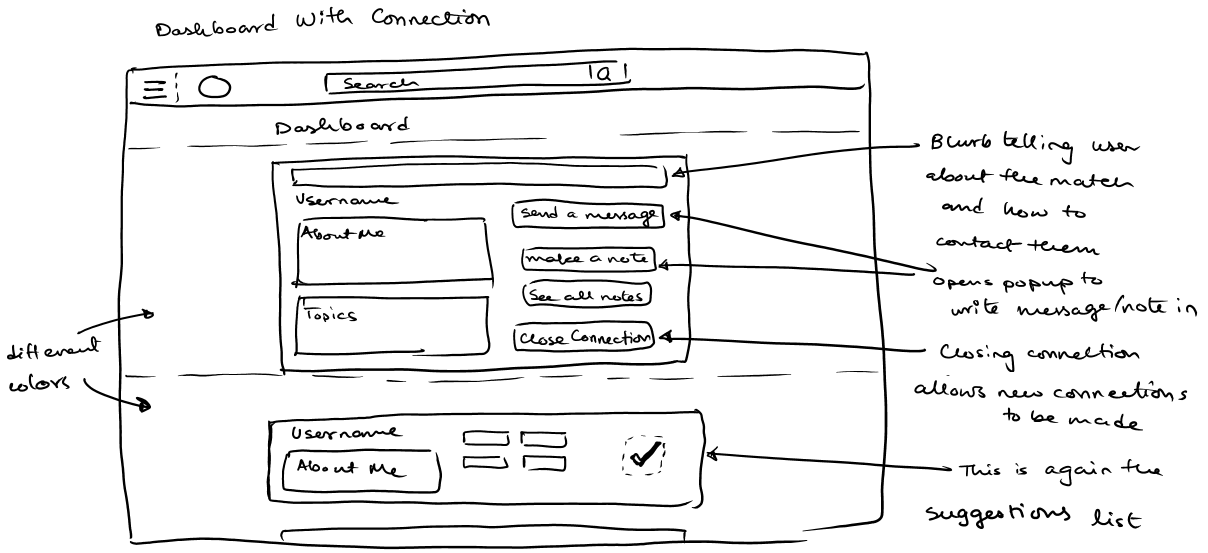 Dashboard With Connection
Search
Dashboard
Username
About Me
Topics
Send a message
make a note
See all notes
Close Connection
Username
About Me
different
colors
Blurb telling user
about the match
and how to
contact them
opens popup to
write message/note in
Closing connection
allows new connections
to be made
This is again the
suggestions list